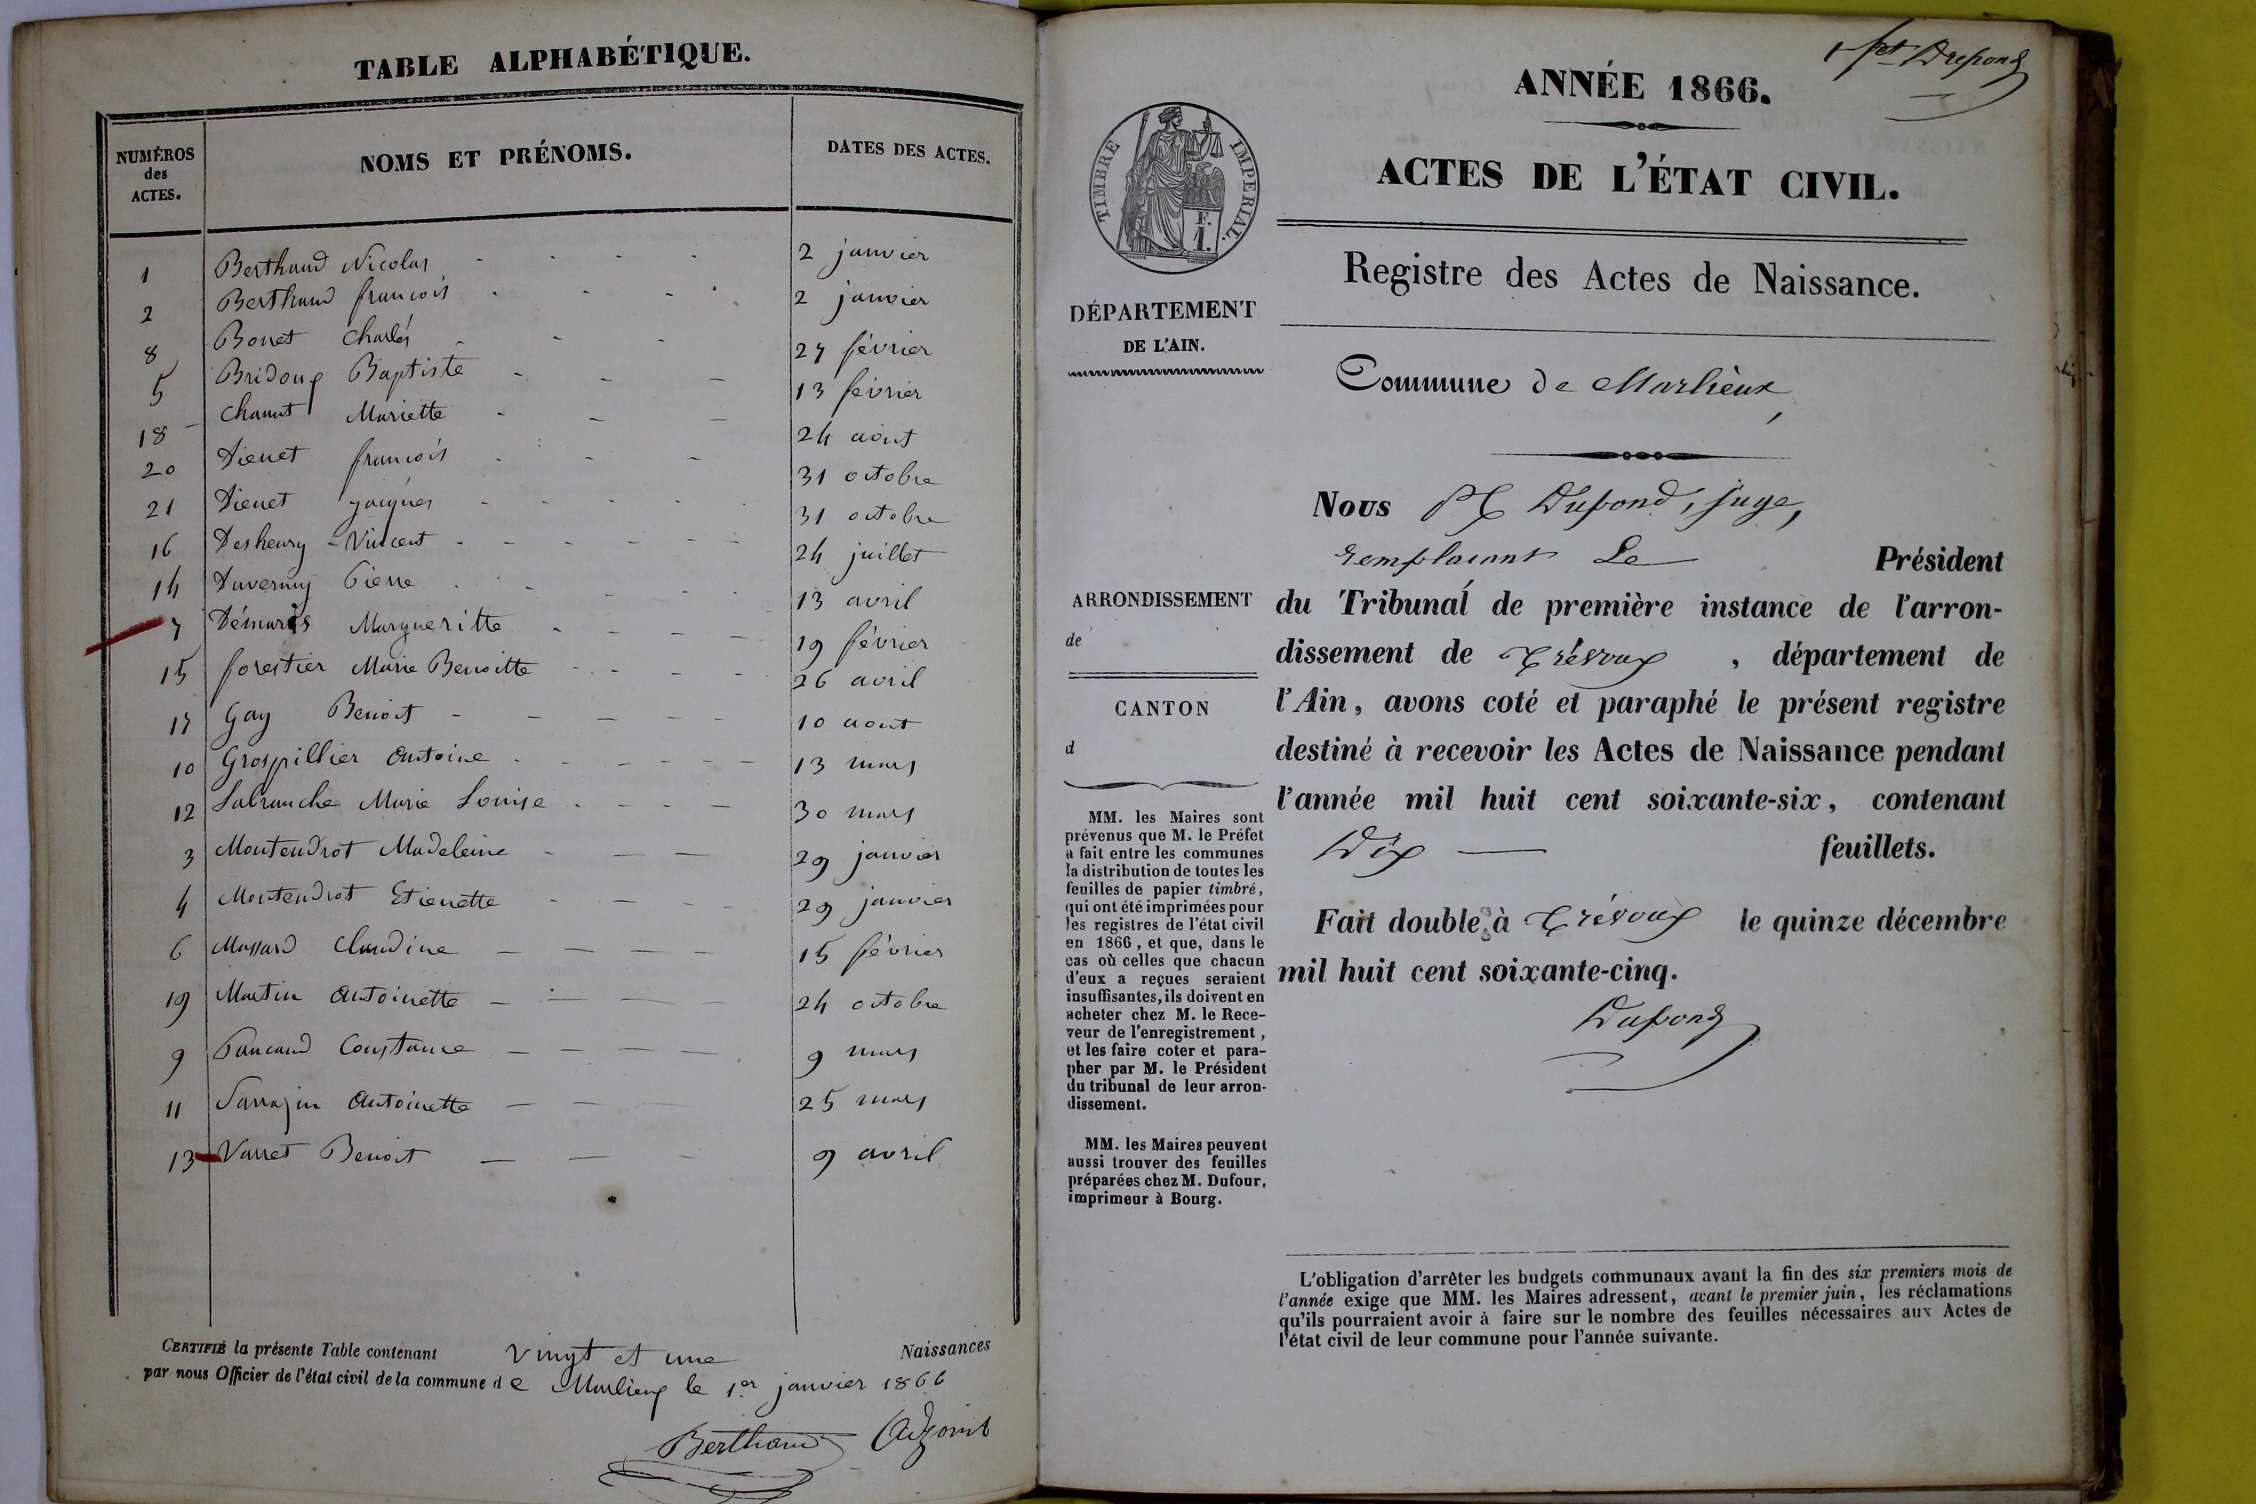 TABLE ALPHABÉTIQUE.
NUMÉROS des ACTES. NOMS ET PRÉNOMS. DATES DES ACTES.
1 Berthaud Nicolas 2 janvier
2 Berthaud françois 2 janvier
8 Bonet Charles 27 février
5 Bridoux Baptiste 13 février
18 Chanut Mariette 24 août
20 Dienet françois 31 octobre
21 Dienet jacques 31 octobre
16 Deshenry Vincent 24 juillet
14 Duvernay Pierre 13 avril
7 Démaris Margueritte 19 février
15 forestier Marie Benoitte 26 avril
17 Gay Benoit 10 aout
10 Grospillier Antoine 13 mars
12 Labranche Marie Louise 30 mars
3 Montendrot Madeleine 29 janvier
4 Montendrot Etienette 29 janvier
6 Massard Claudine 15 février
19 Martin Antoinette 24 octobre
9 Pancaud Constance 9 mars
11 Sarrazin Antoinette 25 mars
13 Varret Benoit 9 avril
CERTIFIÉ la présente Table contenant vingt et une Naissances
par nous Officier de l'état civil de la commune de Marlieux le 1er janvier 1866
Berthaud Adjoint
1er fet Dupond
ANNÉE 1866.
ACTES DE L'ÉTAT CIVIL.
TIMBRE IMPERIAL.
F.
1.
Registre des Actes de Naissance.
DÉPARTEMENT
DE L'AIN.
Commune de Marlieux
Nous Dupond, juge,
remplacant Le Président
du Tribunal de première instance de l'arron-
dissement de Trévoux, département de
l'Ain, avons coté et paraphé le présent registre
destiné à recevoir les Actes de Naissance pendant
l'année mil huit cent soixante-six, contenant
Dix feuillets.
Fait double à Trévoux le quinze décembre
mil huit cent soixante-cinq.
Dupond
ARRONDISSEMENT
de
CANTON
d
MM. les Maires sont
prévenus que M. le Préfet
a fait entre les communes
la distribution de toutes les
feuilles de papier timbré,
qui ont été imprimées pour
les registres de l'état civil
en 1866, et que, dans le
cas où celles que chacun
d'eux a reçues seraient
insuffisantes, ils doivent en
acheter chez M. le Rece-
veur de l'enregistrement,
et les faire coter et para-
pher par M. le Président
du tribunal de leur arron-
dissement.
MM. les Maires peuvent
aussi trouver des feuilles
préparées chez M. Dufour,
imprimeur à Bourg.
L'obligation d'arrêter les budgets communaux avant la fin des six premiers mois de
l'année exige que MM. les Maires adressent, avant le premier juin, les réclamations
qu'ils pourraient avoir à faire sur le nombre des feuilles nécessaires aux Actes de
l'état civil de leur commune pour l'année suivante.